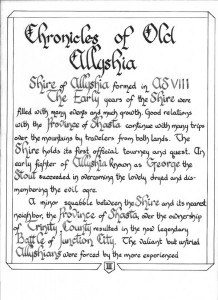 Chronicles of Old
Allyshia
Shire of Allyshia formed in AS VIII
The Early years of the Shire were
filled with many events and much growth. Good relations
with the Province of Shasta continue with many trips
over the mountains by travelers from both lands. The
Shire holds its first official tourney and quest. An
early fighter of Allyshia known as George the
Stout succeeded in overcoming the lovely dryad and dis-
membering the evil ogre.
A minor squabble between the Shire and its nearest
neighbor, the Province of Shasta, over the ownership
of Trinity County resulted in the now legendary
Battle of Junction City. The valiant but untried
Allyshians were forced by the more experienced